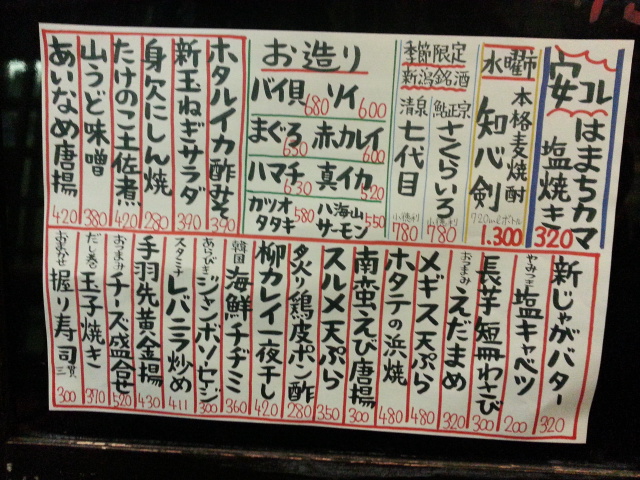 安コレ
はまちカマ
塩焼き 320
水曜市
本格麦焼酎
知心剣
720mlボトル
1.300
季節限定
新潟銘酒
鮎正宗
さくらいろ
780
清泉
七代目
780
お造り
バイ貝 680
ソイ 600
まぐろ 630
赤カレイ 600
ハマチ 630
真イカ 520
カツオタタキ 580
八海山サーモン 550
ホタルイカ酢みそ 390
新玉ねぎサラダ 390
身欠にしん焼 280
たけのこ土佐煮 420
山うど味噌 380
あいなめ唐揚 420
新じゃがバター 320
やみつき塩キャベツ 200
長芋短冊わさび 300
おつまみえだまめ 320
メギス天ぷら 480
ホタテの浜焼 480
南蛮えび唐揚 300
スルメ天ぷら 350
炙り鶏皮ポン酢 280
柳カレイ一夜干し 420
韓国海鮮チヂミ 360
あらびきジャンボソーセージ 300
スタミナレバニラ炒め 411
手羽先黄金揚 430
おつまみチーズ盛合せ 520
だし巻玉子焼き 370
おまかせ握り寿司三貫 300